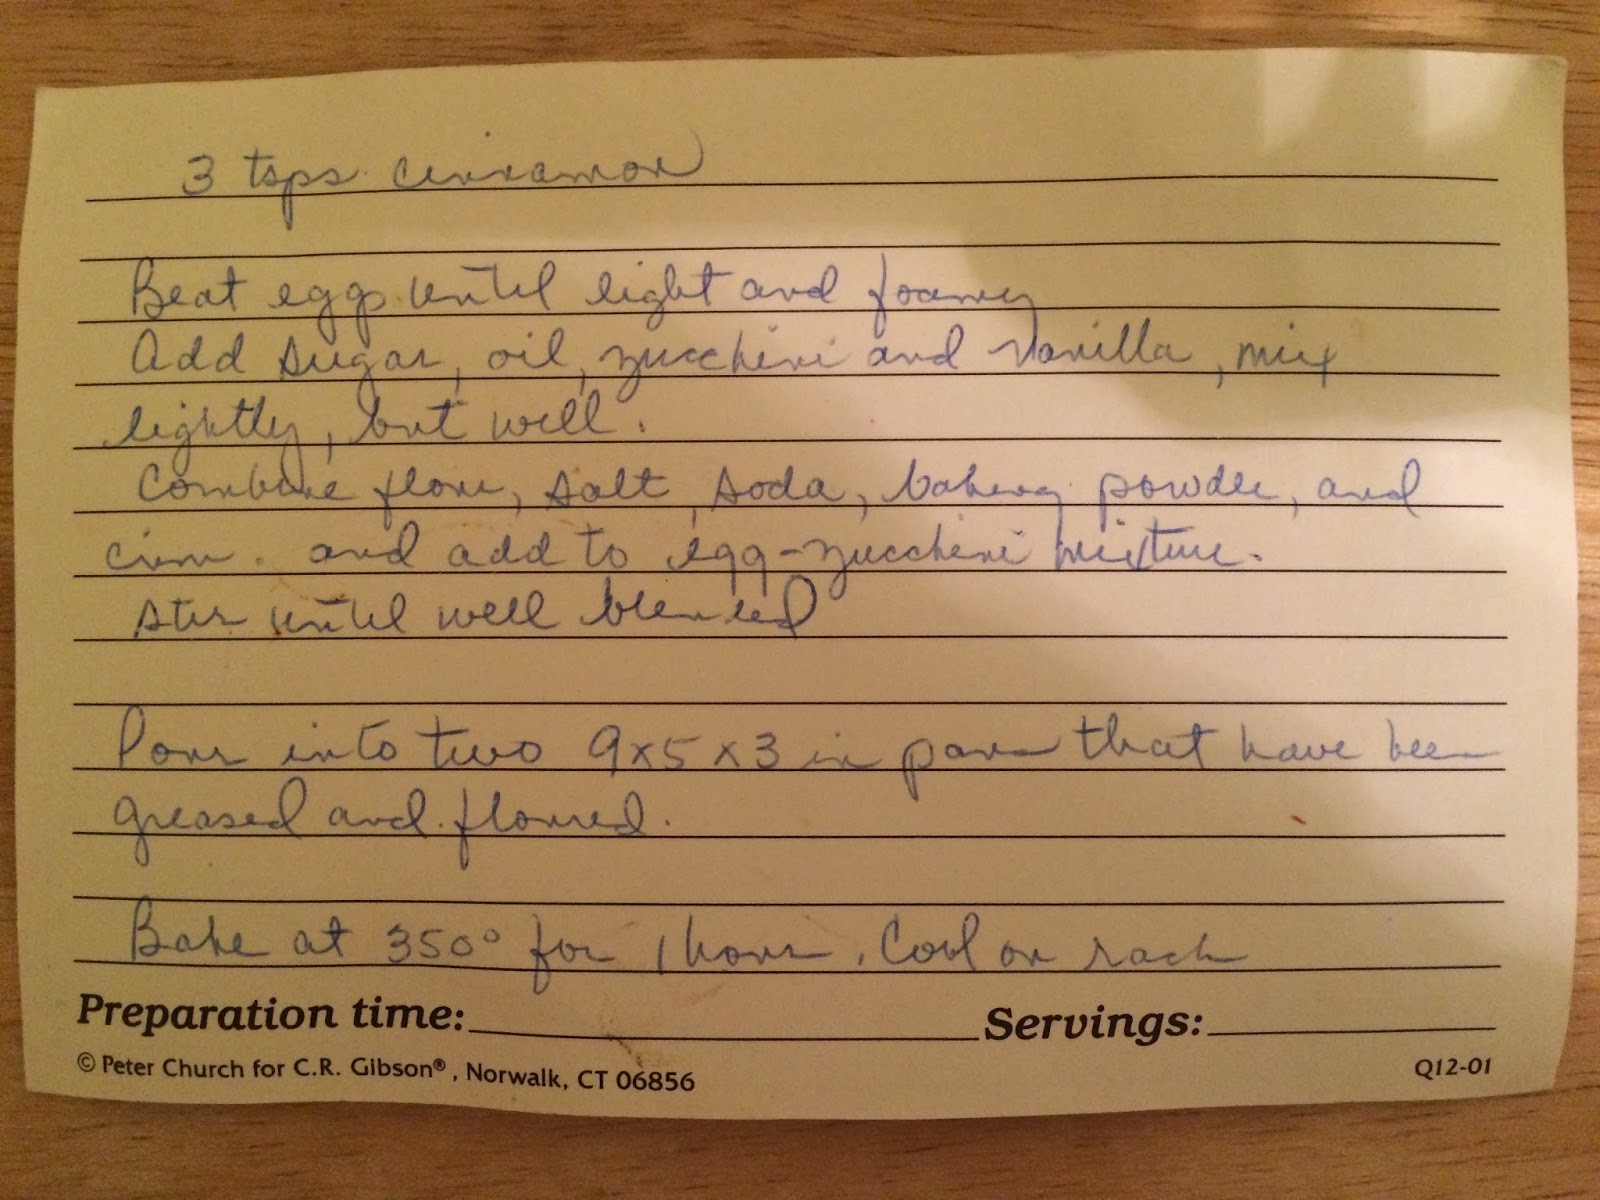 3 tsps cinnamon
Beat eggs until light and foamy
Add sugar, oil, zucchini and vanilla, mix
lightly, but well.
Combine flour, salt, soda, baking powder, and
cinn. and add to egg-zucchini mixture.
stir until well blended
Pour into two 9x5x3 in pans that have been
greased and floured.
Bake at 350° for 1 hour. Cool on rack
Preparation time: Servings:
© Peter Church for C.R. Gibson®, Norwalk, CT 06856 Q12-01